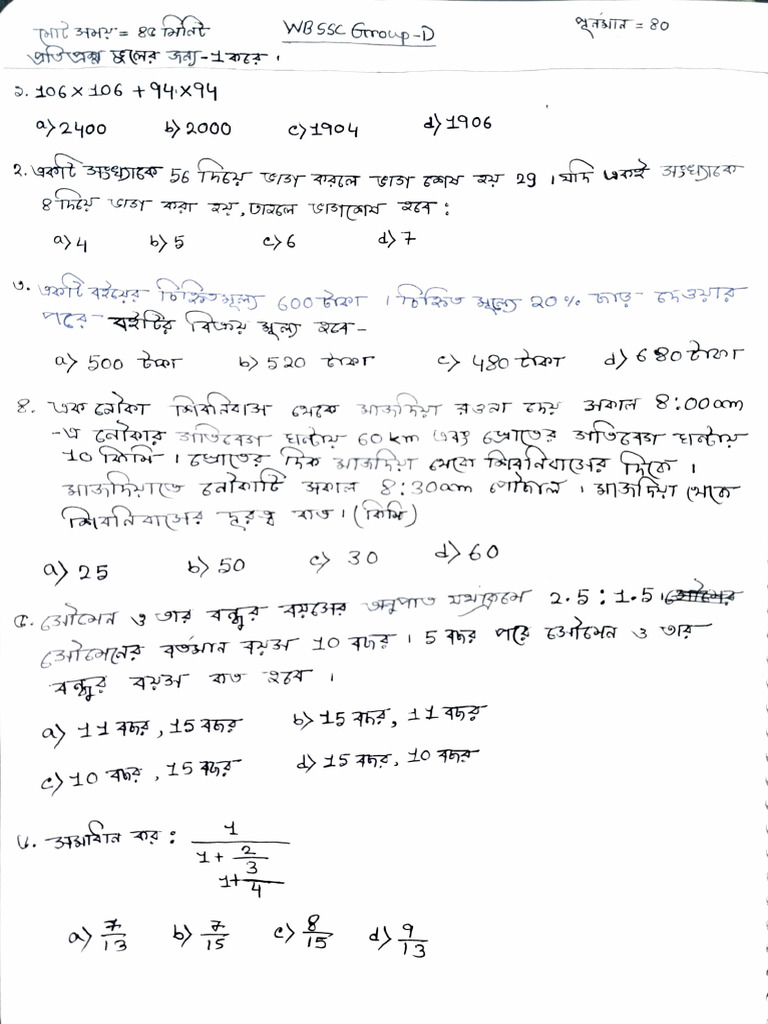 মোট সময় = ৪৫ মিনিট WBSSC Group-D পূর্নমান = ৪০
প্রতিপ্রশ্ন ভুলের জন্য -1 করে।
১. 106 × 106 + 94 × 94
a) 2400 b) 2000 c) 1904 d) 1906
২. একটি সংখ্যাকে 56 দিয়ে ভাগ করলে ভাগ শেষ হয় 29। যদি একই সংখ্যাকে
8 দিয়ে ভাগ করা হয়, তাহলে ভাগশেষ হবে:
a) 4 b) 5 c) 6 d) 7
৩. একটি বইয়ের চিহ্নিতমূল্য 600 টাকা। চিহ্নিত মূল্যে 20% ছাড় দেওয়ার
পরে বইটির বিক্রয় মূল্য হবে-
a) 500 টাকা b) 520 টাকা c) 480 টাকা d) 680 টাকা
৪. এক নৌকা শিবনিবাস থেকে মাজদিয়া রওনা দেয় সকাল 8:00am
-এ নৌকার গতিবেগ ঘন্টায় 60km এবং স্রোতের গতিবেগ ঘন্টায়
10 কিমি। স্রোতের দিক মাজদিয়া থেকে শিবনিবাসের দিকে।
মাজদিয়াতে নৌকাটি সকাল 8:30am পৌছাল। মাজদিয়া থেকে
শিবনিবাসের দূরত্ব কত। (কিমি)
a) 25 b) 50 c) 30 d) 60
৫. সৌমেন ও তার বন্ধুর বয়সের অনুপাত যথাক্রমে 2.5 : 1.5।
সৌমেনের বর্তমান বয়স 10 বছর। 5 বছর পরে সৌমেন ও তার
বন্ধুর বয়স কত হবে।
a) 11 বছর, 15 বছর b) 15 বছর, 11 বছর
c) 10 বছর, 15 বছর d) 15 বছর, 10 বছর
৬. সমাধান কর: 1
1 + 2
3
1 + 4
a) 7/13 b) 7/15 c) 8/15 d) 9/13